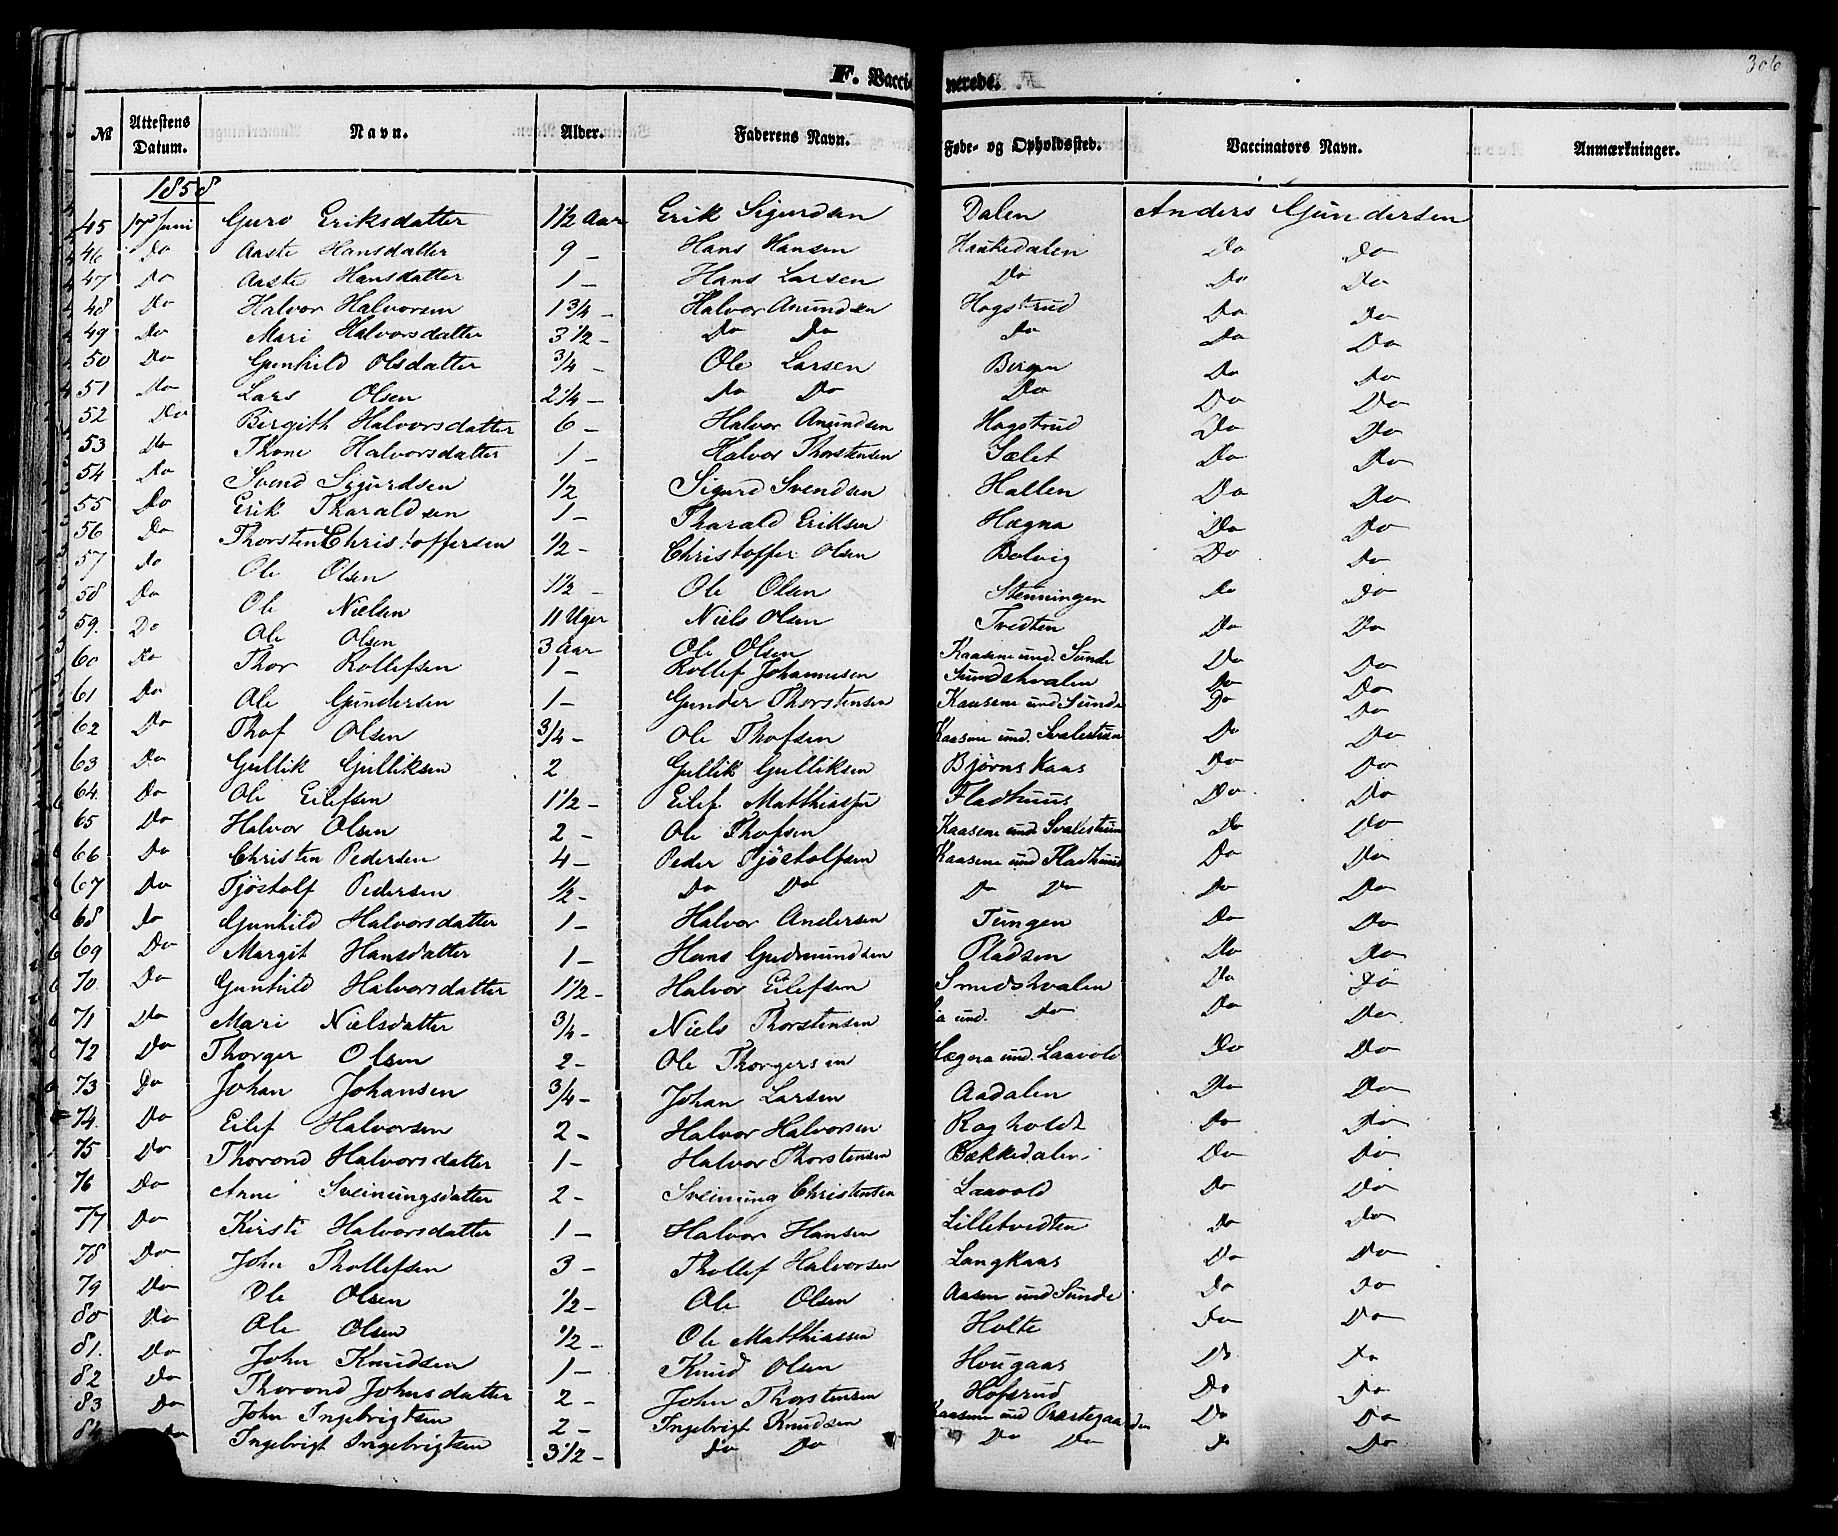 306
F. Vaccinerede.
№ Attestens Datum. Navn. Alder. Faderens Navn. Føde- og Opholdssted. Vaccinators Navn. Anmærkninger.
1858
45 17 Juni Guro Eriksdatter 1 1/2 Aar Erik Sigurdsen Dalen Anders Gundersen
46 Do Aaste Hansdatter 9 - Hans Hansen Haukedalen Do Do
47 Do Aaste Hansdatter 1 - Hans Larsen Do Do Do
48 Do Halvor Halvorsen 1 3/4 - Halvor Anundsen Hogstrud Do Do
49 Do Mari Halvorsdatter 3 1/2 - Do Do Do Do Do
50 Do Gunhild Olsdatter 3/4 - Ole Larsen Bergen Do Do
51 Do Lars Olsen 2 1/4 - Do Do Do Do Do
52 Do Birgith Halvorsdatter 6 - Halvor Anundsen Hogstrud Do Do
53 Do Thone Halvorsdatter 1 - Halvor Thorstensen Sælet Do Do
54 Do Svend Sigurdsen 1/2 Sigurd Svendsen Hallen Do Do
55 Do Erik Tharaldsen 1 - Tharald Eriksen Hægna Do Do
56 Do Thorsten Christoffersen 1/2 - Christoffer Olsen Bolvig Do Do
57 Do Ole Olsen 1 1/2 - Ole Olsen Stenningen Do Do
58 Do Ole Nielsen 11 Uger Niels Olsen Tvedten Do Do
59. Do Ole Olsen 3 Aar Ole Olsen Kaasene und. Sunde Do Do
60 Do Thor Rollefsen 1 - Rollef Johannesen Sundshvalen Do Do
61 Do Ole Gundersen 1 - Gunder Thorstensen Kaasene und Sunde Do Do
62 Do Thof Olsen 3/4 - Ole Thofsen Kaasene und. Svalestuen Do Do
63 Do Gullik Gulliksen 2 Gullik Gulliksen Bjørnskaas Do Do
64. Do Ole Eilefsen 1 1/2 - Eilef Matthiassen Fladhuus Do Do
65 Do Halvor Olsen 2 - Ole Thofsen Kaasene und Svalestuen Do Do
66 Do Christen Pedersen 4 - Peder Tjöstolfsen Kaasene und Fladhuus Do Do
67 Do Tjöstolf Pedersen 1/2 - Do Do Do Do Do Do
68 Do Gunhild Halvorsdatter 1 - Halvor Andersen Tungen Do Do
69 Do Margit Hansdatter 1 - Hans Gudmundsen Pladsen Do Do
70. Do Gunhild Halvorsdatter 1 1/2 - Halvor Eilefsen Smidshvalen Do Do
71 Do Mari Nielsdatter 3/4 - Niels Thorstensen und. Do Do Do
72 Do Thorger Olsen 2 - Ole Thorgersen Hægna und. Laavold Do Do
73 Do Johan Johansen 3/4 - Johan Larsen Aadalen Do Do
74. Do Eilef Halvorsen 2 - Halvor Halvorsen Rogholdt Do Do
75 Do Thorond Halvorsdatter 1 - Halvor Thorstensen Bækkedalen Do Do
76 Do Arne Sveinungsdatter 2 - Sveinung Christensen Laavold Do Do
77 Do Kirsti Halvorsdatter 1 - Halvor Hansen Lilletvedten Do Do
78 Do John Thollefsen 3 - Thollef Halvorsen Langkaas Do Do
79 Do Ole Olsen 1/2 - Ole Olsen Aasen und Sunde Do Do
80 Do Ole Olsen 1/2 - Ole Matthiassen Holte Do Do
81. Do John Knudsen 1 - Knud Olsen Hougaas Do Do
82 Do Thorond Johnsdatter 2 - John Thorstensen Hofsrud Do Do
83 Do John Ingebrigtsen 2 - Ingebrigt Knudsen Kaasene und Præstegaarden Do Do
84 Do Ingebrigt Ingebrigtsen 3 1/2 - Do Do Do Do Do Do